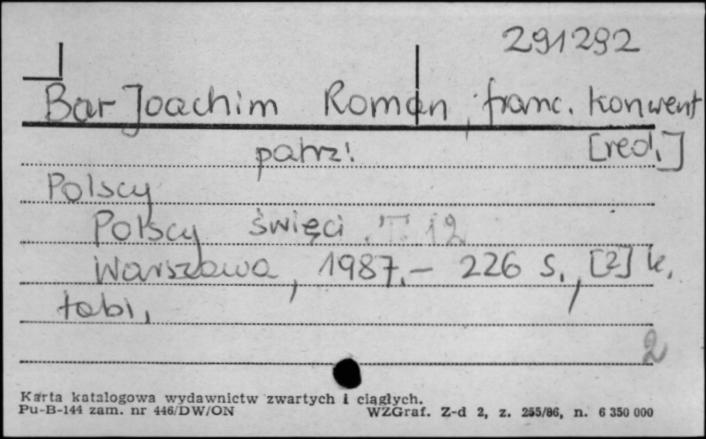 291292
Bar Joachim Roman, franc. konwent
patrz: [red.]
Polscy
Polscy święci. T. 12
Warszawa, 1987.- 226 s., [2] k.
tabl.
2
Karta katalogowa wydawnictw zwartych i ciągłych.
Pu-B-144 zam. nr 446/DW/ON WZGraf. Z-d 2, z. 255/86, n. 6 350 000